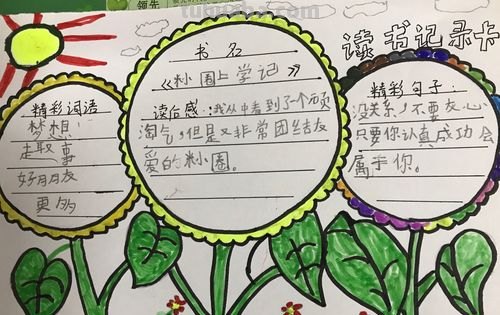 领先
tubaobao.com
读书记录卡
书名
《米小圈上学记》
读后感:我从中看到了一个顽
淘气,但是又非常团结友
爱的米小圈。
精彩词语
梦想
趣事
好朋友
更多
精彩句子:
没关系,不要灰心
只要你认真成功会
属于你。